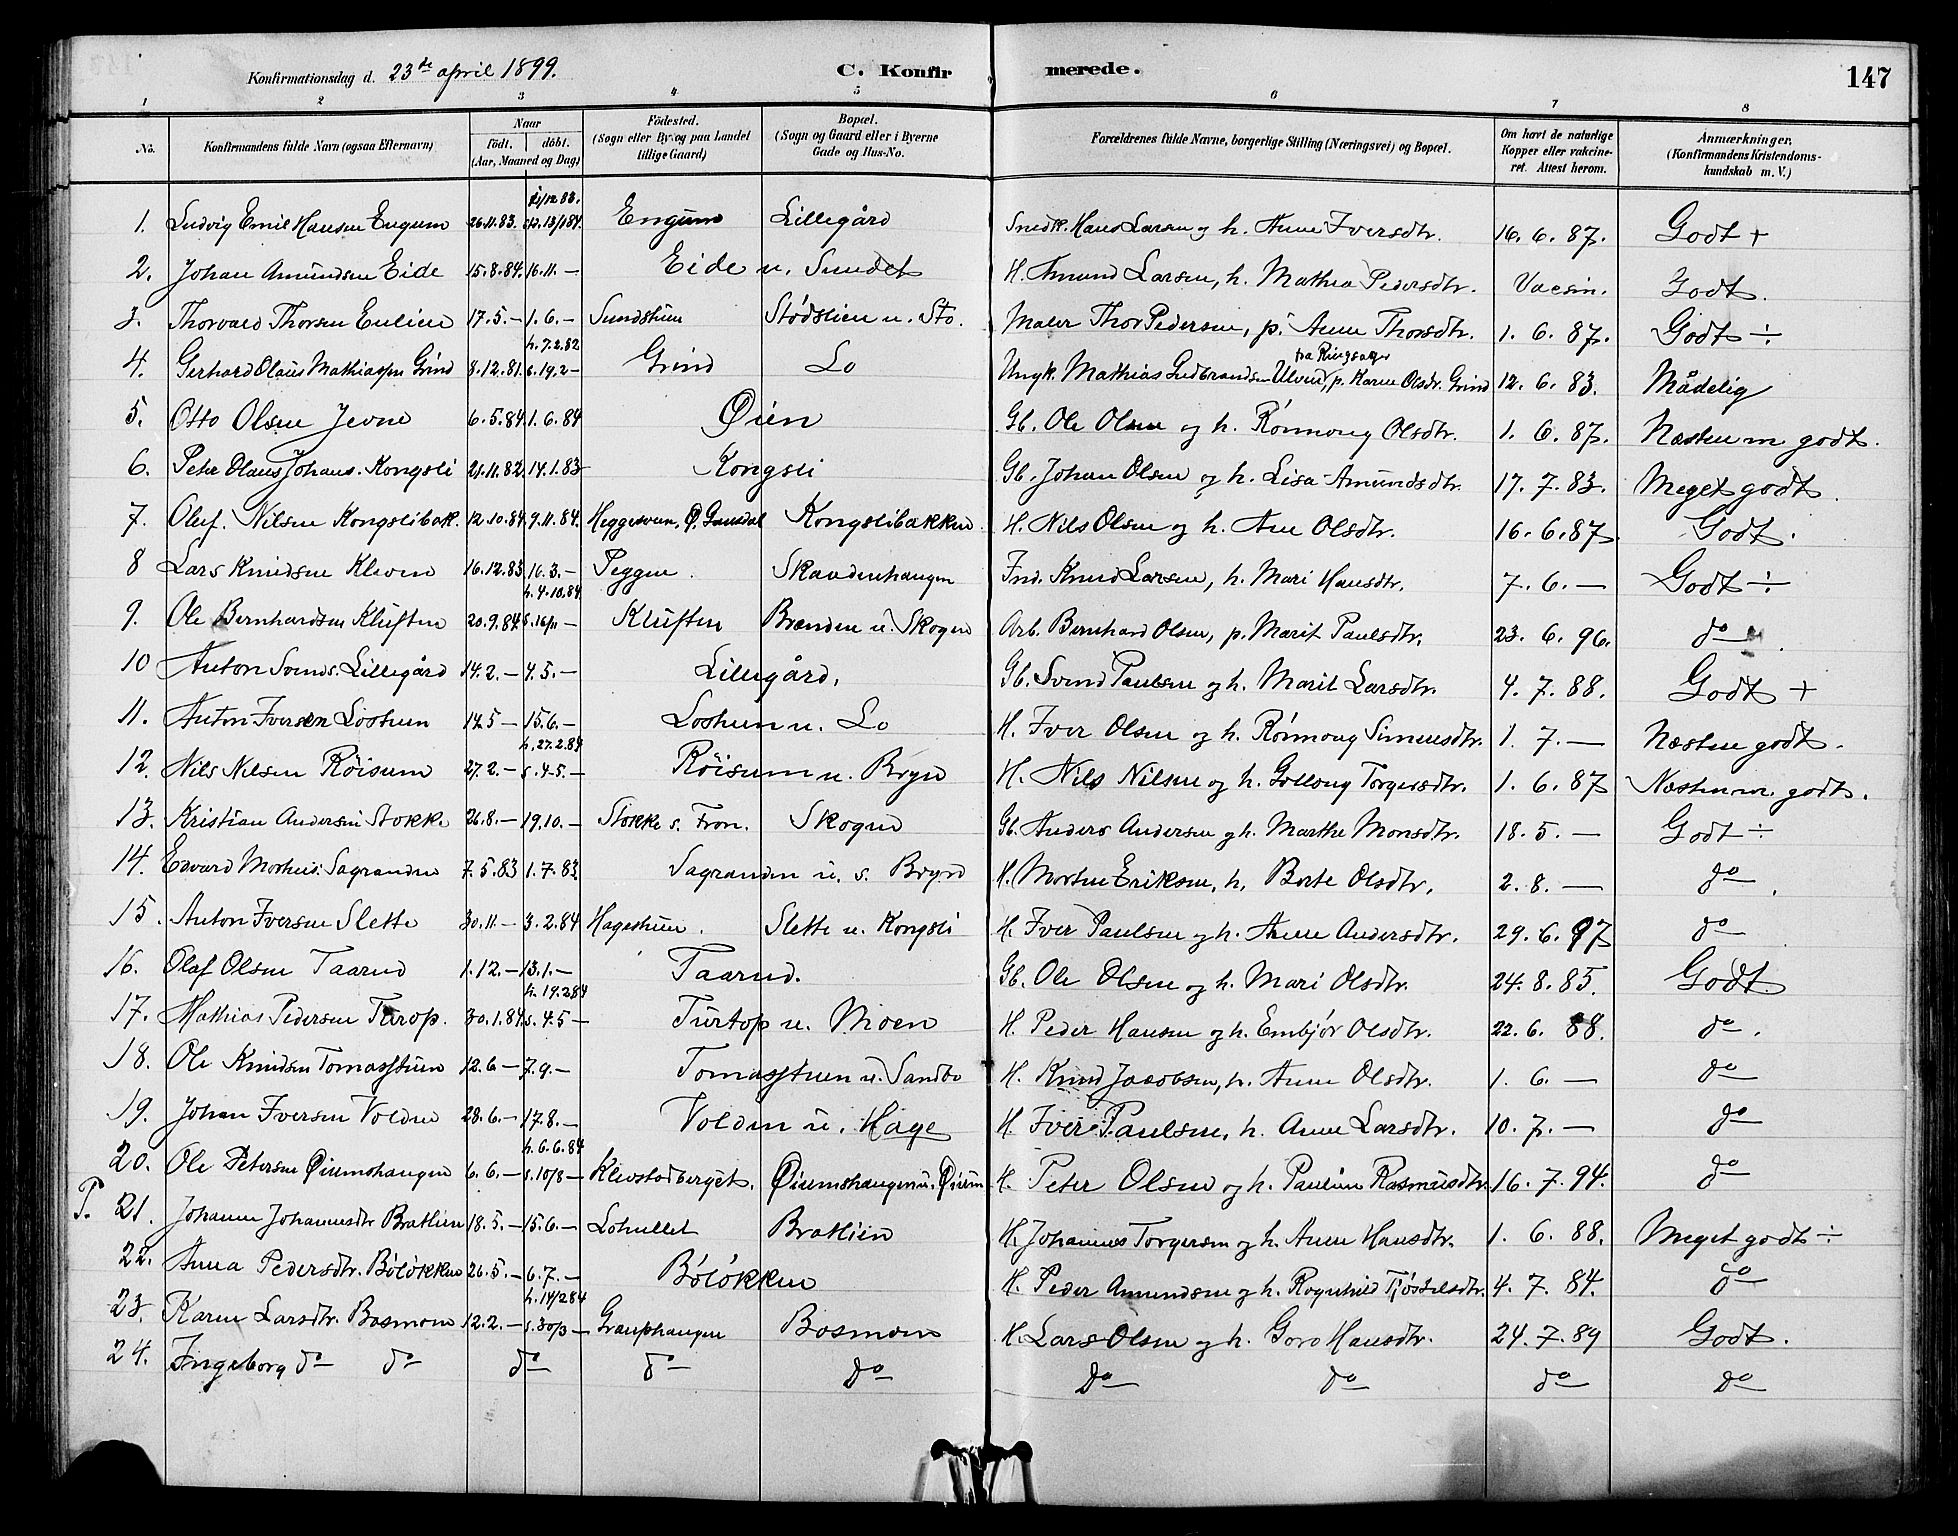 Konfirmationsdag d. 23de april 1899. C. Konfirmerede. 147
1 2 3 4 5 6 7 8
No. Konfirmandens fulde Navn (ogsaa Efternavn) Naar födt. döbt. (Aar, Maaned og Dag) Födested. (Sogn eller By og paa Landet tillige Gaard) Bopæl. (Sogn og Gaard eller i Byerne Gade og Hus-No. Forældrenes fulde Navne, borgerlige Stilling (Næringsvei) og Bopæl. Om havt de naturlige Kopper eller vakcineret. Attest herom. Anmærkninger, (Konfirmandens Kristendomskundskab m. V.)
1. Ludvig Emil Hansen Engum 26.11.83. Engum Lillegård Snedk. Hans Larsen og h. Anne Iversdtr. 16. 6. 87. Godt +
2. Johan Amundsen Eide 15.8.84. 16.11. — Eide u. Sundet H. Amund Larsen, h. Mathea Pedersdtr. Vacsin. Godt.
3. Thorvald Thorsen Enlien 17.5. — 1.6. — Sundstuen Stødslien u. Sto. Maler Thor Pedersen, p. Anne Thorsdtr. 1. 6. 87. Godt ÷
4. Gerhard Olaus Mathiassen Grind 8.12.81. h. 7.2.82 19.2 — Grind Lo Ungk. Mathias Gudbrandsen Ulven, fra Ringsager p. Karen Olsdr. Grind 12. 6. 83. Mådelig
5. Otto Olsen Jevne 6.5.84. 1.6.84 Øien Gb. Ole Olsen og h. Rønnoug Olsdtr. 1. 6. 87. Næsten m godt.
6. Peter Olaus Johans. Kongsli 21.11.82. 14.1.83 Kongsli Gb. Johan Olsen og h. Lisa Amundsdtr. 17. 7. 83. Meget godt.
7. Oluf. Nilsen Kongslibak. 12.10.84. 9.11.84. Heggesveen, Ø. Gausdal Kongslibakken H. Nils Olsen og h. Ane Olsdtr. 16. 6. 87. Godt.
8 Lars Knudsen Kleven 16.12.83. 16.3. — Peggen. Skaudenhaugen Ind. Knud Larsen, h. Mari Hansdtr. 7. 6. — Godt ÷
9. Ole Bernhardsen Kluften 20.9.84. h. 4.10.84 s. 16/11 — Kluften Brænden u. Skogen Arb. Bernhard Olsen, p. Marit Paulsdtr. 23. 6. 96. do
10 Anton Svends. Lillegård 14.2. — 4.5. — Lillegård. Gb. Svend Paulsen og h. Marit Larsdtr. 4. 7. 88. Godt +
11. Anton Iversen Lostuen 14.5 — 15.6. — Lostuen u. Lo H. Iver Olsen og h. Rønnoug Simensdtr. 1. 7. — Næsten godt.
12. Nils Nilsen Röisum 27.2. — h. 27.2.84 s. 4.5. — Röisum u. Bryn H. Nils Nilsen og h. Gollaug Torgersdtr. 1. 6. 87 Næsten m. godt.
13. Kristian Andersen Stokke 26.8. — 19.10. — Stokke s. Fron. Skogen Gb. Anders Andersen og h. Marthe Monsdtr. 18. 5. — Godt ÷
14. Edvard Mortens. Sagranden 7.5.83 1.7.83 Sagranden u. s. Bryn H. Morten Eriksen, h. Berte Olsdtr. 2. 8. — do.
15. Anton Iversen Slette 30.11. — 3.2.84 Hagestuen. Slette u. Kongsli H. Iver Paulsen og h. Anne Andersdtr. 29. 6. 97 do
16. Olaf Olsen Taarud 1.12. — 13.1. — Taarud. Gb. Ole Olsen og h. Mari Olsdtr. 24. 8. 85. Godt.
17. Mathias Pedersen Turtop. 30.1.84. h. 19.2.84 s. 4.5 — Turtop u. Moen H. Peder Hansen og h. Embjør Olsdtr. 22. 6. 88. do.
18. Ole Knudsen Tomasstuen 12.6 — 7.9. — Tomasstuen u. Sandbo H. Knud Jacobsen, h. Anne Olsdtr. 1. 6. — do
19. Johan Iversen Volden 28.6. — 17.8. — Volden u. Hage H. Iver Paulsen, h. Anne Larsdtr. 10. 7. — do
20. Ole Petersen Øiumshaugen 6.6. — h. 6.6.84 s. 10/8 — Klevstadberget. Øiumshaugen u. Øium H. Peter Olsen og h. Pauline Rasmusdtr. 16. 7. 94. do
P. 21. Johanne Johannesdtr Bratlien 18.5. — 15.6. — Bratlien H. Johannes Torgersen og h. Anne Hansdtr. 1. 6. 88. Meget godt ÷
22. Anna Pedersdtr. Bøløkken 26.5. — 6.7. — Bøløkken H. Peder Amundsen og h. Rognhild Tjøstelsdtr. 4. 7. 84. do
23. Karen Larsdtr. Bosmoen 12.2. — h. 14/2 84 s. 30/3 — Grauphaugen Bosmoen H. Lars Olsen og h. Goro Hansdtr. 24. 7. 89 Godt.
24. Ingeborg do do do do do do do do do